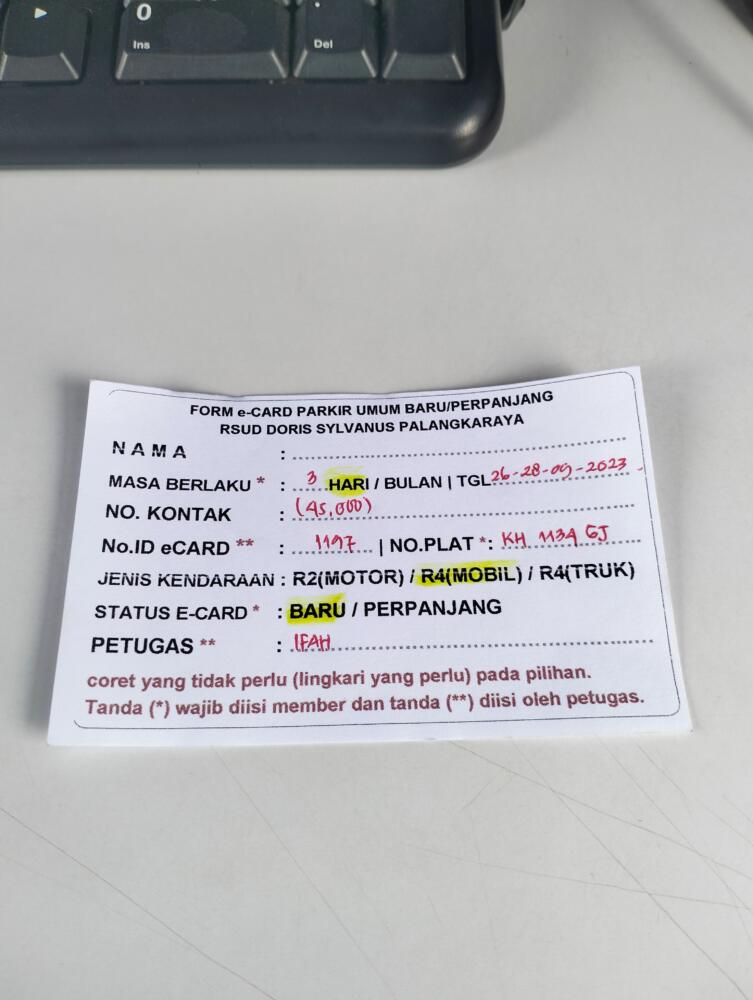 0
Ins
Del
FORM e-CARD PARKIR UMUM BARU/PERPANJANG
RSUD DORIS SYLVANUS PALANGKARAYA
N A M A :
MASA BERLAKU * : 3 HARI / BULAN | TGL 26-28-09-2023
NO. KONTAK : (45,000)
No.ID eCARD ** : 1197 | NO.PLAT *: KH 1134 GJ
JENIS KENDARAAN : R2(MOTOR) / R4(MOBIL) / R4(TRUK)
STATUS E-CARD * : BARU / PERPANJANG
PETUGAS ** : IFAH
coret yang tidak perlu (lingkari yang perlu) pada pilihan.
Tanda (*) wajib diisi member dan tanda (**) diisi oleh petugas.